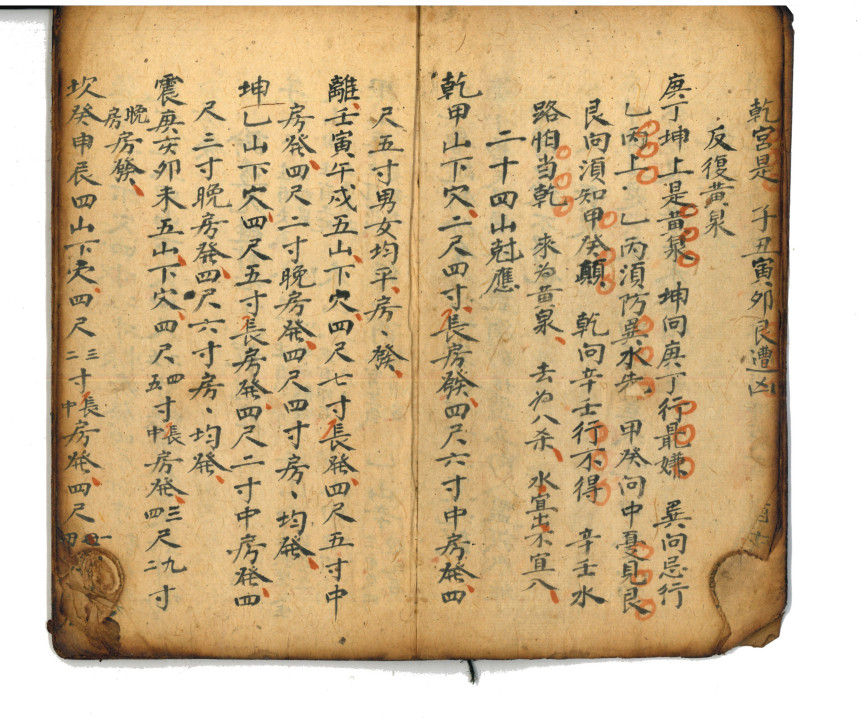 乾宮是子丑寅卯艮遭凶
反復黃泉
庚丁坤上是黃泉 坤向庚丁行最嫌 巽向忌行
乙丙上乙丙須防巽水先 甲癸向中憂見艮
艮向須知甲癸顛 乾向辛壬行不得 辛壬水
路怕当乾 來為黃泉 去为八杀 水宜出不宜入
二十四山尅應
乾甲山下穴二尺四寸長房發四尺六寸中房發四
尺五寸男女均平房、發
離壬寅午戍五山下穴四尺七寸長發四尺五寸中
房發四尺二寸晚房發四尺四寸房、均發
坤乙山下穴四尺五寸長房發四尺二寸中房發四
尺三寸晚房發四尺六寸房、均發
震庚亥卯未五山下穴四尺四五寸長中房發三四尺九二寸
晚房房發
坎癸申辰四山下穴四尺三二寸長中房發四尺